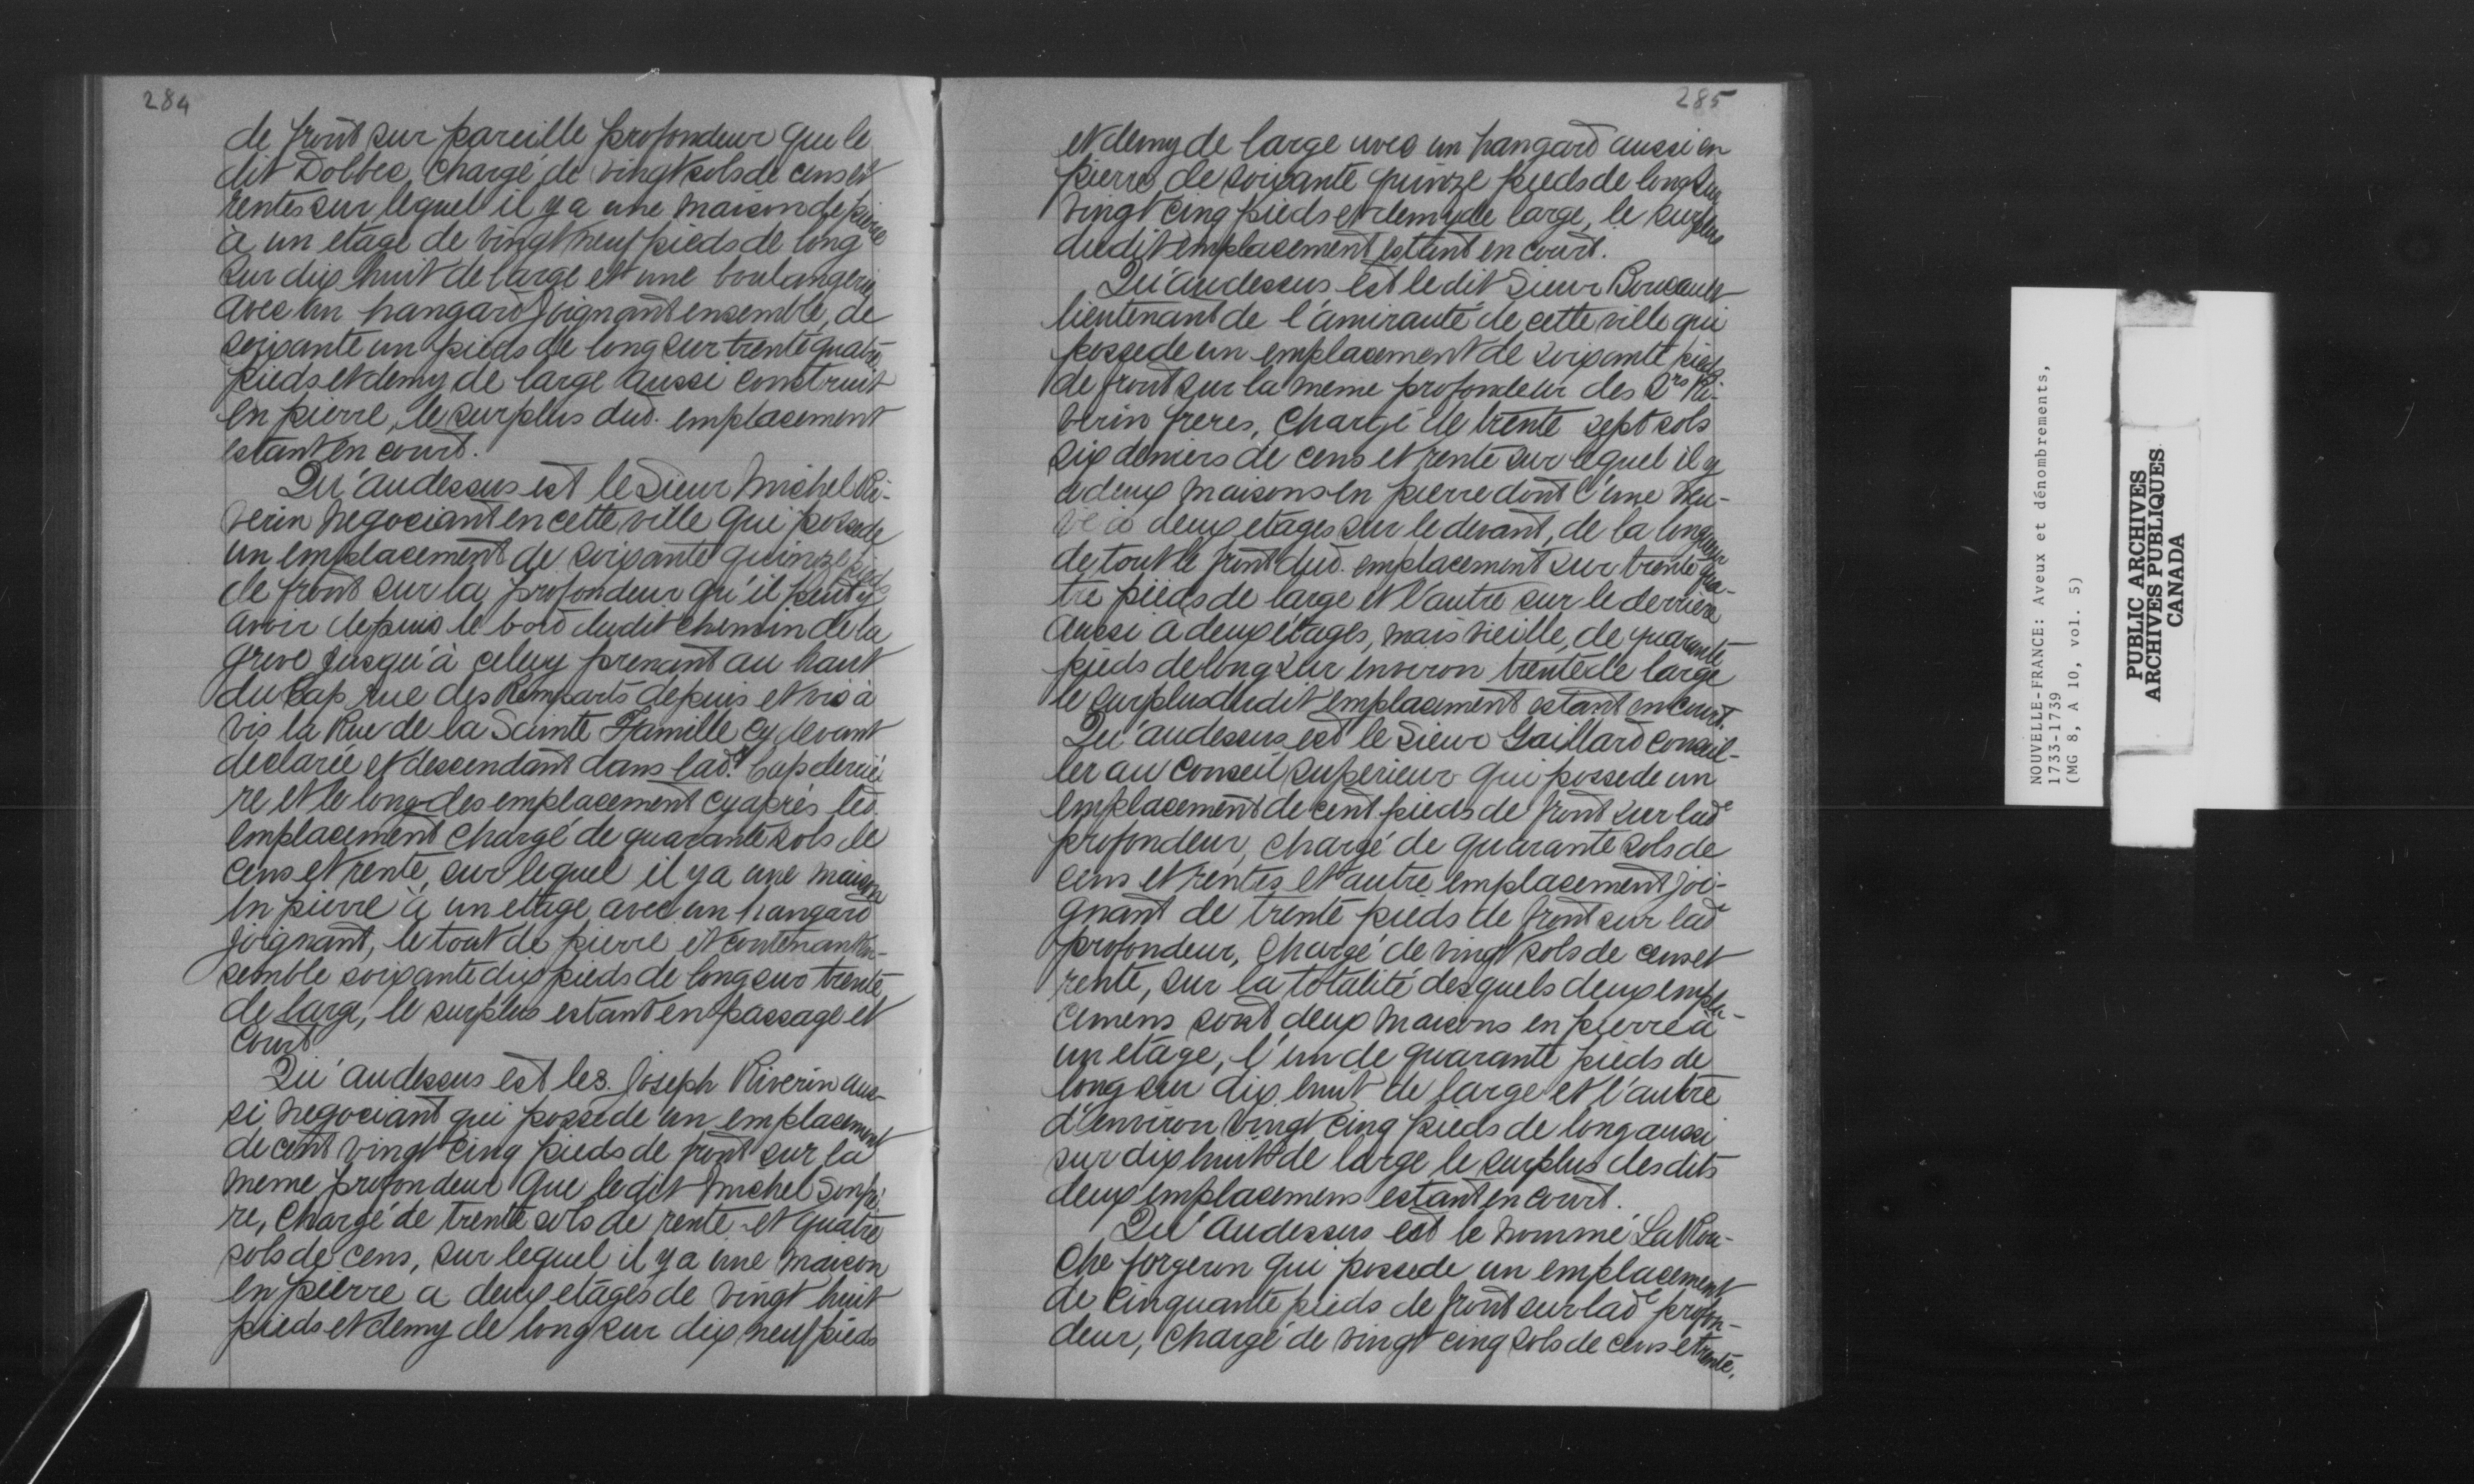 284
de front sur pareille profondeur que le
dit Dolbec, chargé de vingt sols de cens et
rentes sur lequel il y a une maison de pierre
à un etage de vingt neuf pieds de long
sur dix huit de large et une boulangerie
avec un hangard joignant ensemble, de
soixante un pieds de long sur trente quatre
pieds et demy de large aussi construit
en pierre, le surplus dud. emplacement
estant en court.
Qu'audessus est le Sieur Michel Ri-
verin negociant en cette ville qui possede
un emplacement de soixante quinze pieds
de front sur la profondeur qu'il peut y
avoir depuis le bord dudit chemin de la
greve jusqu'à celuy prenant au haut
du Cap rue des Remparts depuis et vis à
vis la Rue de la Sainte Famille cy devant
declarée et descendant dans lad.e Cap derrie
re et le long des emplacement cy après led.
emplacement chargé de quarante sols de
cens et rente, sur lequel il y a une maison
en pierre à un etage avec un hangard
joignant, le tout de pierre et contenant en-
semble soixante dix pieds de long sur trente
de large, le surplus estant en passage et
court
Qu'audessus est le s. Joseph Riverin aus-
si negociant qui possede un emplacement
de cent vingt cinq pieds de front sur la
meme profondeur que ledit Michel son fre-
re, chargé de trente sols de rente et quatre
sols de cens, sur lequel il y a une maison
en pierre a deux etages de vingt huit
pieds et demy de long sur dix neuf pieds
285
et demy de large avec un hangard aussi en
pierre de soixante quinze pieds de long sur
vingt cinq pieds et demy de large, le surplus
dudit emplacement estant en court.
Qu'audessus est le dit Sieur Boucault
lieutenant de l'amirauté de cette ville qui
possede un emplacement de soixante pieds
de front sur la meme profondeur des Srs Ri-
verin freres, chargé de trente sept sols
six deniers de cens et rente sur lequel il y
a deux maisons en pierre dont l'une neu-
ve à deux etages sur le devant, de la longueur
de tout le front dud. emplacement sur trente qua-
tre pieds de large et l'autre sur le derriere
aussi a deux étages, mais vieille, de quarante
pieds de long sur environ trente de large
le surplus dudit emplacement estant en court.
Qu'audessus est le Sieur Gaillard conseil-
ler au Conseil superieur qui possede un
emplacement de cent pieds de front sur lade
profondeur, chargé de quarante sols de
cens et rentes et autre emplacement joi-
gnant de trente pieds de front sur lade
profondeur, chargé de vingt sols de cens et
rente, sur la totalité desquels deux empla-
cemens sont deux maisons en pierre à
un etage, l'un de quarante pieds de
long sur dix huit de large et l'autre
d'environ vingt cinq pieds de long aussi
sur dix huit de large le surplus desdits
deux emplacemens estant en court.
Qu'audessus est le nommé La Rou-
che forgeron qui possede un emplacement
de cinquante pieds de front sur lade profon-
deur, chargé de vingt cinq sols de cens et rente,
NOUVELLE-FRANCE: Aveux et dénombrements,
1733-1739
(MG 8, A 10, vol. 5)
PUBLIC ARCHIVES
ARCHIVES PUBLIQUES
CANADA